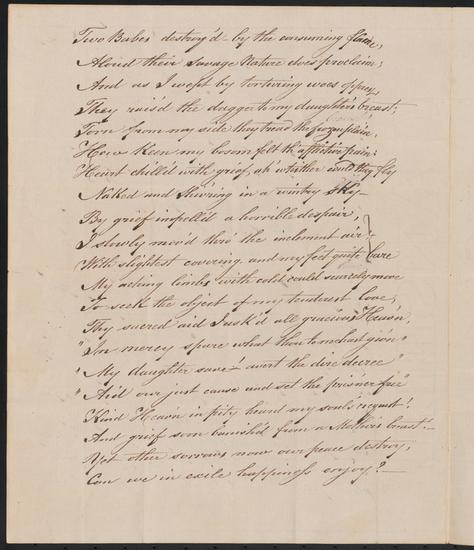 Two Babes destroy'd by the consuming flame,
Aloud their Savage Nature does proclaim;
And as I wept by torturing woes opprest,
They rais'd the dagger to my daughter's breast;
Torn from my side they tread the frozen plain,
How Keen my bosom felt th' afflictive pain:
Heart chill'd with grief, ah whither could they fly
Naked and shivring in a wintry sky —
By grief impell'd a horrible despair,
I slowly mov'd thro' the inclement air:
With slightest covering, and my feet quite bare
My aching limbs with cold could scarcely move
To seek the object of my tenderest love,
Thy sacred aid I ask'd all gracious Heaven,
" In mercy spare what thou to me hast given "
" My daughter save! avert the dire decree "
" Aid our just cause and set the pris'ner free "
Kind Heav'n in pity heard my soul's request!
And grief soon banish'd from a Mother's breast! —
Yet other sorrows now our peace destroy,
Can we in exile happiness enjoy? —